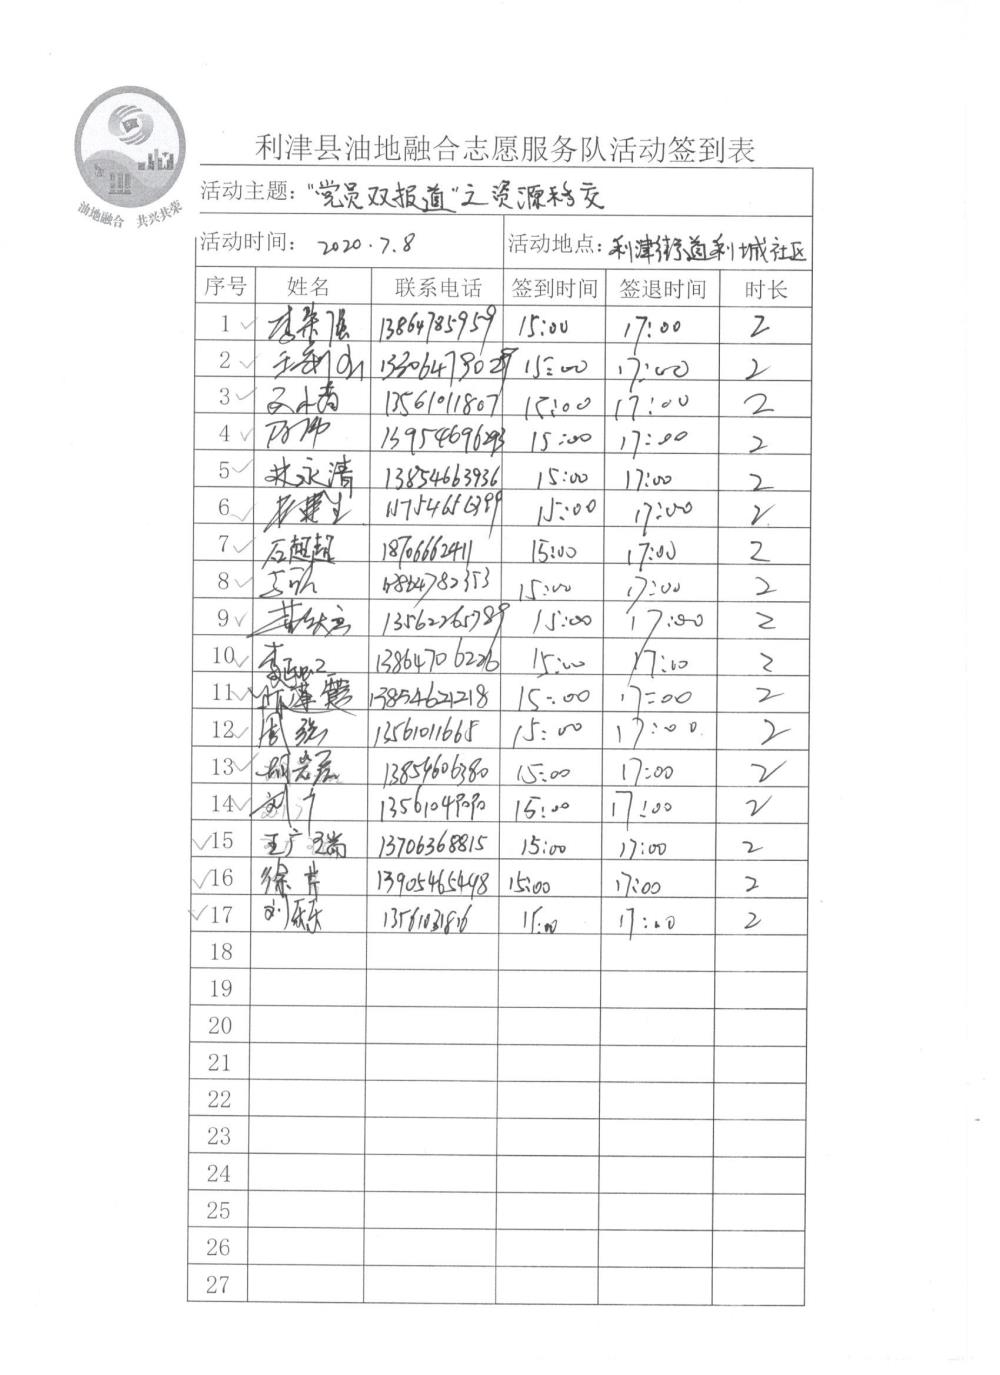 利津县油地融合志愿服务队活动签到表
油地融合 共兴共荣
活动主题："党员双报道"之资源移交
活动时间： 2020.7.8 活动地点：利津街道利城社区
序号 姓名 联系电话 签到时间 签退时间 时长
1 李荣强 13864785959 15:00 17:00 2
2 15:00 17:00 2
3 13561011807 15:00 17:00 2
4 15:00 17:00 2
5 林永清 13854663936 15:00 17:00 2
6 15:00 17:00 2
7 石超超 18706662411 15:00 17:00 2
8 15:00 17:00 2
9 13562265789 15:00 17:00 2
10 13864706226 15:00 17:00 2
11 13854621218 15:00 17:00 2
12 周强 13561011665 15:00 17:00 2
13 13854606380 15:00 17:00 2
14 15:00 17:00 2
15 王广瑞 13706368815 15:00 17:00 2
16 徐芹 13905465498 15:00 17:00 2
17 刘乐乐 15:00 17:00 2
18
19
20
21
22
23
24
25
26
27